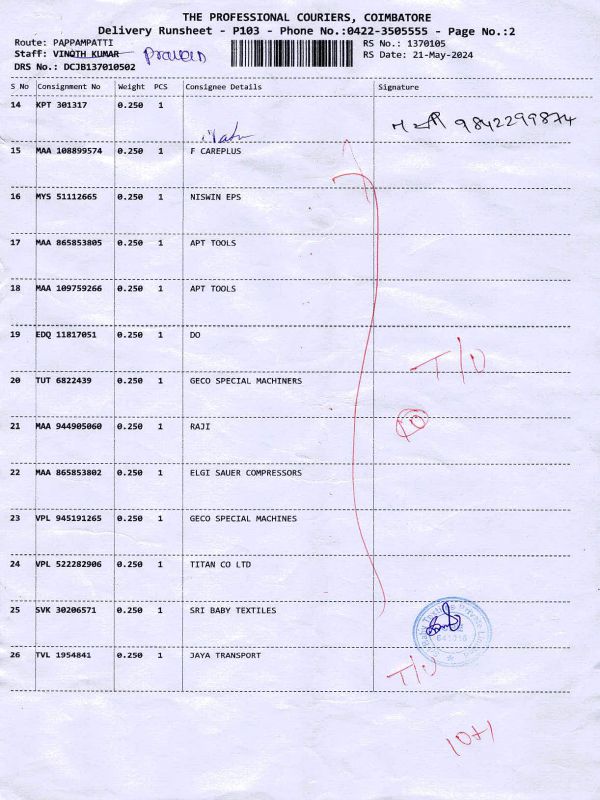 THE PROFESSIONAL COURIERS, COIMBATORE
Delivery Runsheet - P103 - Phone No.:0422-3505555 - Page No.:2
Route: PAPPAMPATTI RS No.: 1370105
Staff: VINOTH KUMAR Praveen RS Date: 21-May-2024
DRS No.: DCJB137010502
S No Consignment No Weight PCS Consignee Details Signature
14 KPT 301317 0.250 1
9842299874
15 MAA 108899574 0.250 1 F CAREPLUS
16 MYS 51112665 0.250 1 NISWIN EPS
17 MAA 865853805 0.250 1 APT TOOLS
18 MAA 109759266 0.250 1 APT TOOLS
19 EDQ 11817051 0.250 1 DO
T/D
20 TUT 6822439 0.250 1 GECO SPECIAL MACHINERS
21 MAA 944905060 0.250 1 RAJI
10
22 MAA 865853802 0.250 1 ELGI SAUER COMPRESSORS
23 VPL 945191265 0.250 1 GECO SPECIAL MACHINES
24 VPL 522282906 0.250 1 TITAN CO LTD
25 SVK 30206571 0.250 1 SRI BABY TEXTILES
26 TVL 1954841 0.250 1 JAYA TRANSPORT
T/D
10+1